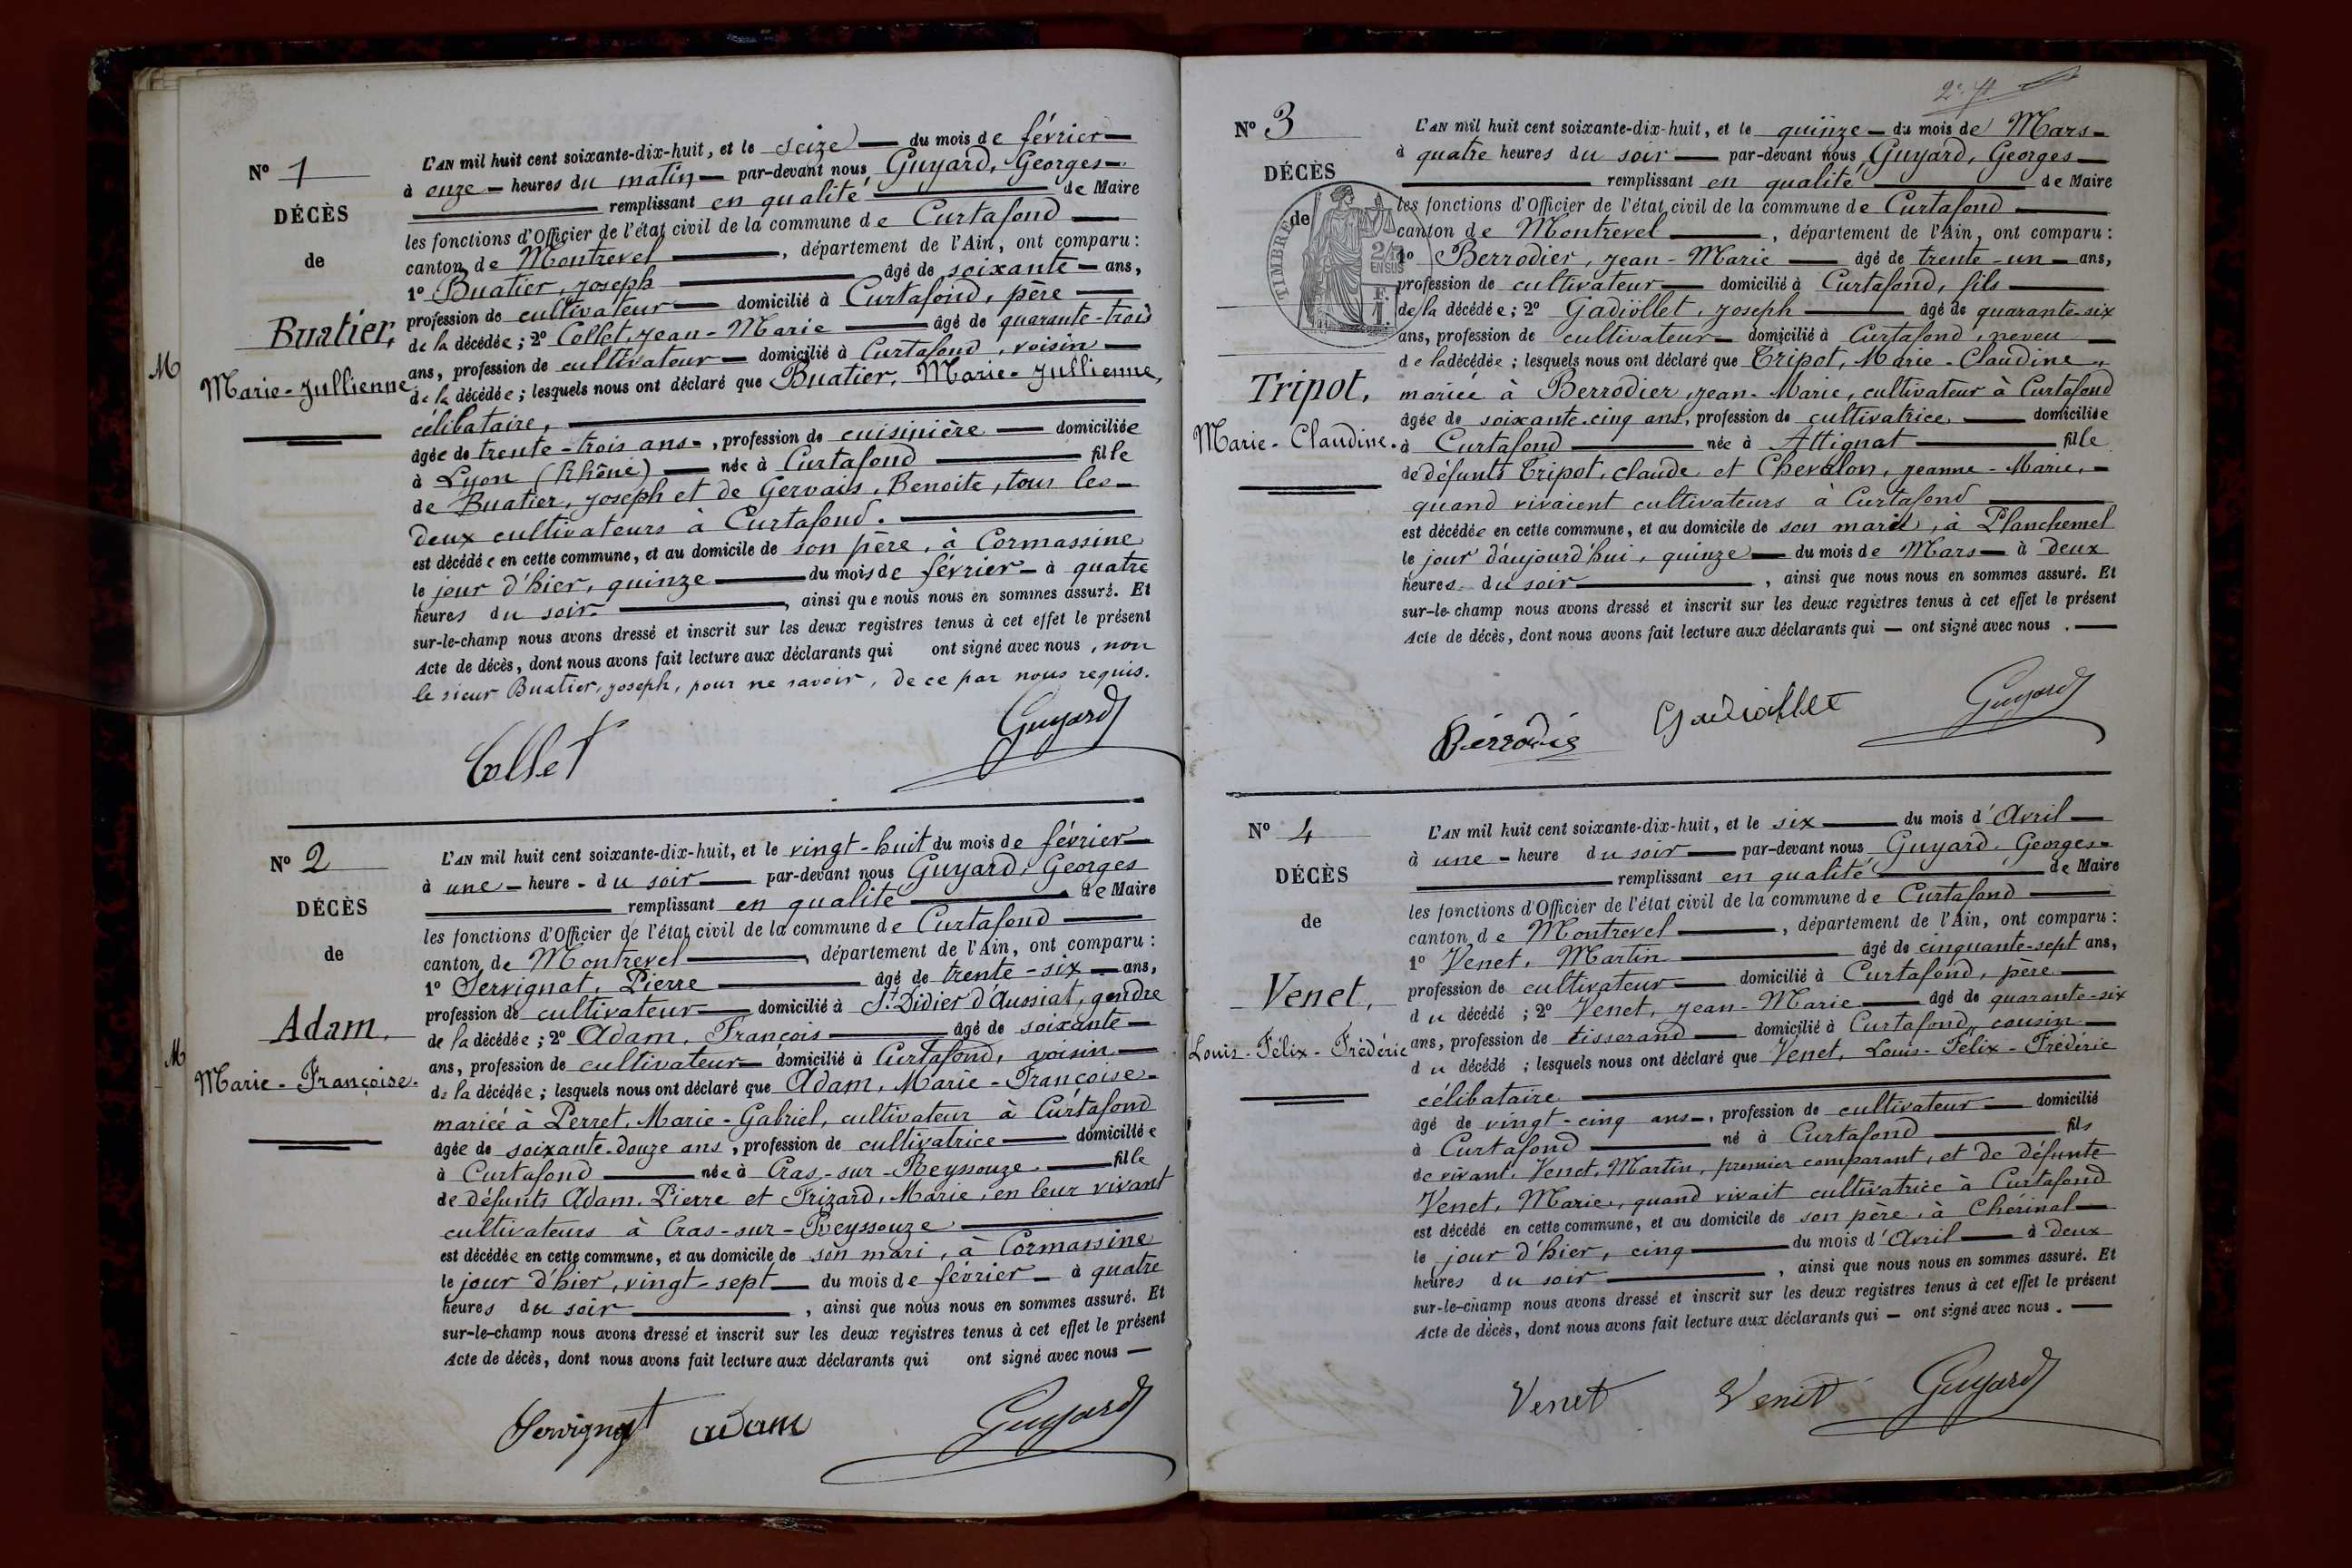 Nº 1
DÉCÈS
de
Buatier,
M
Marie-Jullienne
L'AN mil huit cent soixante-dix-huit, et le seize du mois de février
à onze heures du matin par-devant nous Guyard, Georges
remplissant en qualité de Maire
les fonctions d'Officier de l'état civil de la commune de Curtafond
canton de Montrevel, département de l'Ain, ont comparu:
1º Buatier, Joseph âgé de soixante ans,
profession de cultivateur domicilié à Curtafond, père
de la décédée; 2º Collet, Jean-Marie âgé de quarante-trois
ans, profession de cultivateur domicilié à Curtafond, voisin
de la décédée; lesquels nous ont déclaré que Buatier, Marie-Jullienne,
célibataire,
âgée de trente-trois ans, profession de cuisinière domiciliée
à Lyon (Rhône) née à Curtafond fille
de Buatier, Joseph et de Gervais, Benoite, tous les
deux cultivateurs à Curtafond.
est décédée en cette commune, et au domicile de son père, à Cormassine
le jour d'hier, quinze du mois de février à quatre
heures du soir, ainsi que nous nous en sommes assuré. Et
sur-le-champ nous avons dressé et inscrit sur les deux registres tenus à cet effet le présent
Acte de décès, dont nous avons fait lecture aux déclarants qui ont signé avec nous, non
le sieur Buatier, Joseph, pour ne savoir, de ce par nous requis.
Collet Guyard
Nº 2
DÉCÈS
de
Adam.
M
Marie-Françoise.
L'AN mil huit cent soixante-dix-huit, et le vingt-huit du mois de février
à une heure du soir par-devant nous Guyard, Georges
remplissant en qualité de Maire
les fonctions d'Officier de l'état civil de la commune de Curtafond
canton de Montrevel, département de l'Ain, ont comparu:
1º Servignat, Pierre âgé de trente-six ans,
profession de cultivateur domicilié à St. Didier d'Aussiat, gendre
de la décédée; 2º Adam, François âgé de soixante
ans, profession de cultivateur domicilié à Curtafond, voisin
de la décédée; lesquels nous ont déclaré que Adam, Marie-Françoise
mariée à Perret, Marie-Gabriel, cultivateur à Curtafond
âgée de soixante-douze ans, profession de cultivatrice domiciliée
à Curtafond née à Cras-sur-Reyssouze fille
de défunts Adam, Pierre et Frizard, Marie, en leur vivant
cultivateurs à Cras-sur-Reyssouze
est décédée en cette commune, et au domicile de son mari, à Cormassine
le jour d'hier, vingt-sept du mois de février à quatre
heures du soir, ainsi que nous nous en sommes assuré. Et
sur-le-champ nous avons dressé et inscrit sur les deux registres tenus à cet effet le présent
Acte de décès, dont nous avons fait lecture aux déclarants qui ont signé avec nous
Servignat adam Guyard
Nº 3
DÉCÈS
de
TIMBRE
2/10
EN SUS
1 F.
Tripot,
Marie-Claudine.
L'AN mil huit cent soixante-dix-huit, et le quinze du mois de Mars
à quatre heures du soir par-devant nous Guyard, Georges
remplissant en qualité de Maire
les fonctions d'Officier de l'état civil de la commune de Curtafond
canton de Montrevel, département de l'Ain, ont comparu:
1º Berrodier, Jean-Marie âgé de trente-un ans,
profession de cultivateur domicilié à Curtafond, fils
de la décédée; 2º Gadiollet, Joseph âgé de quarante-six
ans, profession de cultivateur domicilié à Curtafond, neveu
de la décédée; lesquels nous ont déclaré que Tripot, Marie-Claudine
mariée à Berrodier, Jean-Marie, cultivateur à Curtafond
âgée de soixante-cinq ans, profession de cultivatrice domiciliée
à Curtafond née à Attignat fille
de défunts Tripot, Claude et Chevalon, Jeanne-Marie,
quand vivaient cultivateurs à Curtafond
est décédée en cette commune, et au domicile de son mari, à Planchemel
le jour d'aujourd'hui, quinze du mois de Mars à deux
heures du soir, ainsi que nous nous en sommes assuré. Et
sur-le-champ nous avons dressé et inscrit sur les deux registres tenus à cet effet le présent
Acte de décès, dont nous avons fait lecture aux déclarants qui ont signé avec nous.
Gadiollet Guyard
Nº 4
DÉCÈS
de
Venet,
Louis-Félix-Frédéric
L'AN mil huit cent soixante-dix-huit, et le six du mois d'Avril
à une heure du soir par-devant nous Guyard, Georges
remplissant en qualité de Maire
les fonctions d'Officier de l'état civil de la commune de Curtafond
canton de Montrevel, département de l'Ain, ont comparu:
1º Venet, Martin âgé de cinquante-sept ans,
profession de cultivateur domicilié à Curtafond, père
du décédé; 2º Venet, Jean-Marie âgé de quarante-six
ans, profession de tisserand domicilié à Curtafond, cousin
du décédé; lesquels nous ont déclaré que Venet, Louis-Félix-Frédéric
célibataire
âgé de vingt-cinq ans, profession de cultivateur domicilié
à Curtafond né à Curtafond fils
de vivant, Venet, Martin, premier comparant, et de défunte
Venet, Marie, quand vivait cultivatrice à Curtafond
est décédé en cette commune, et au domicile de son père, à Chérinal
le jour d'hier, cinq du mois d'Avril à deux
heures du soir, ainsi que nous nous en sommes assuré. Et
sur-le-champ nous avons dressé et inscrit sur les deux registres tenus à cet effet le présent
Acte de décès, dont nous avons fait lecture aux déclarants qui ont signé avec nous.
Venet Venet Guyard